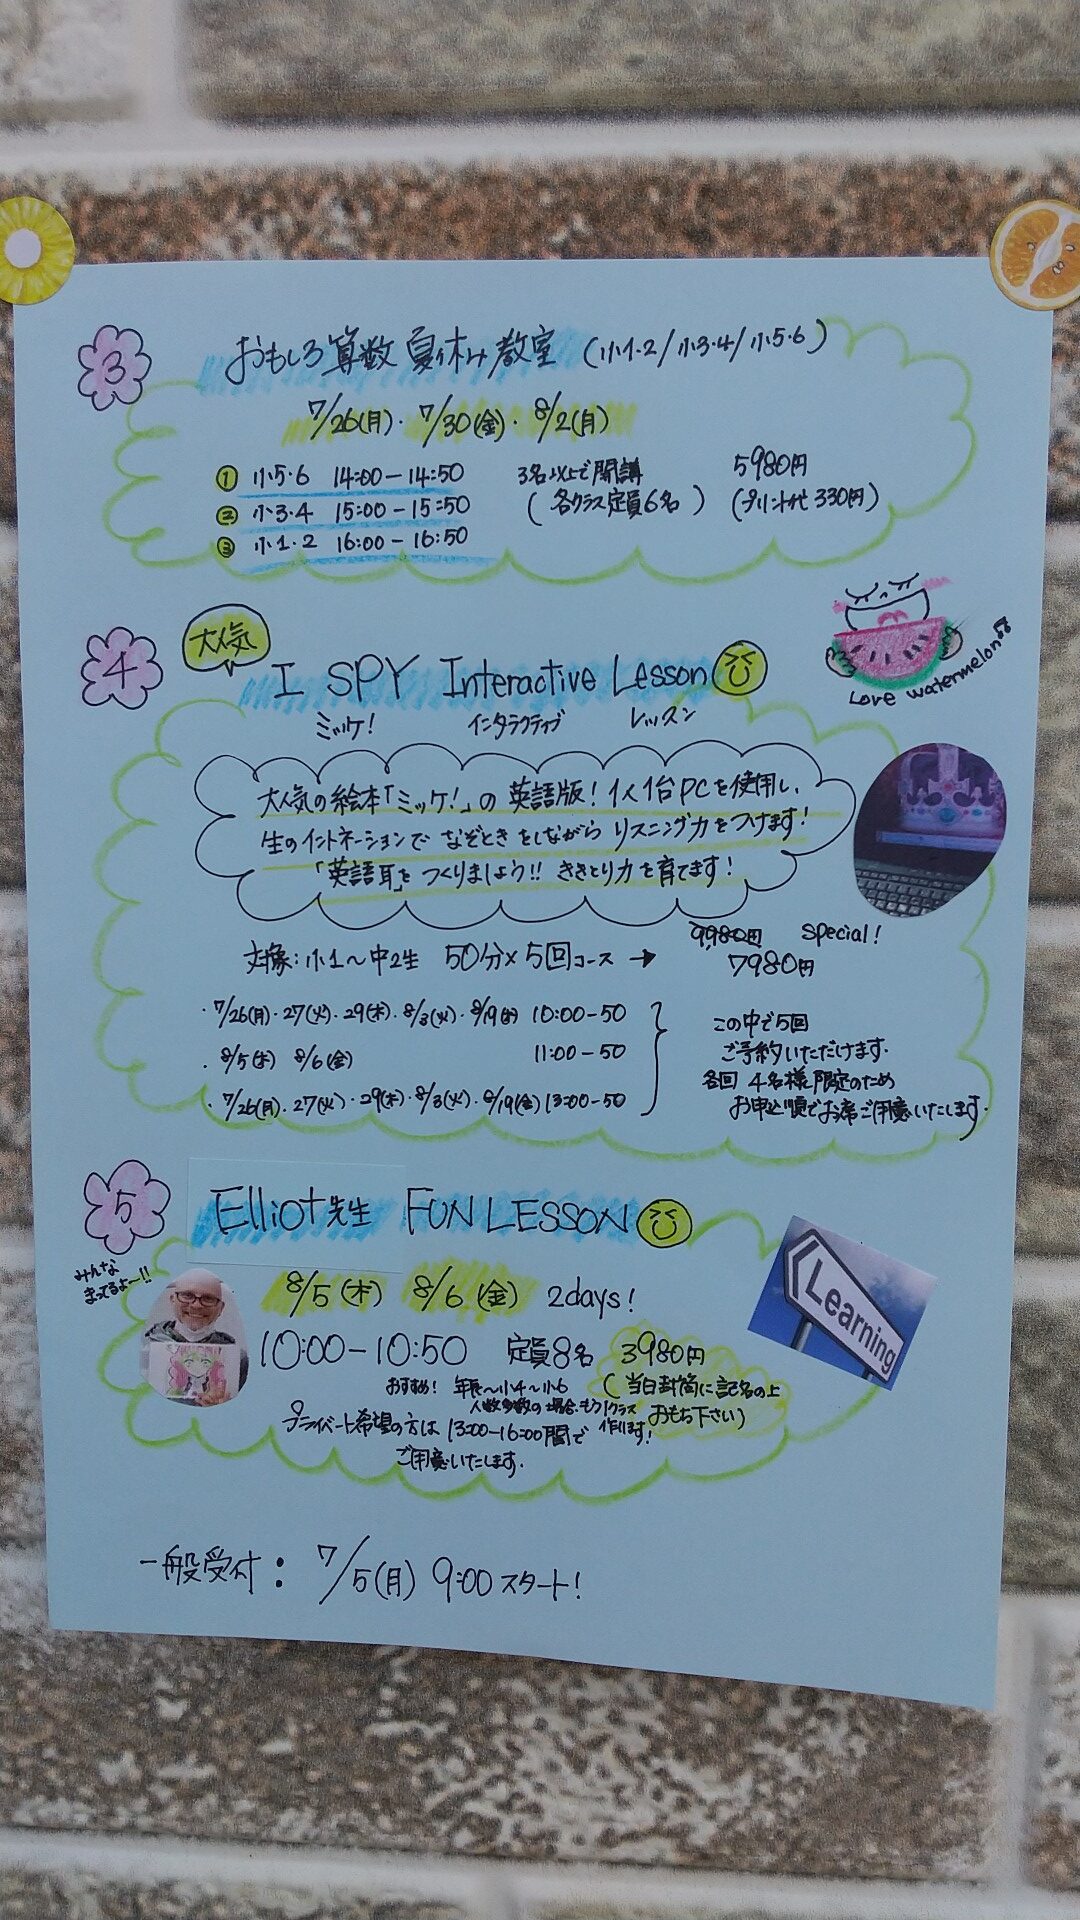 3 おもしろ算数 夏休み教室 (小1・2/小3・4/小5・6)
7/26(月)・7/30(金)・8/2(月)
① 小5・6 14:00-14:50 3名以上で開講 5980円
② 小3・4 15:00-15:50 (各クラス定員6名) (プリント代330円)
③ 小1・2 16:00-16:50
4 大人気 I SPY Interactive Lesson
ミッケ! インタラクティブ レッスン
Love watermelon♫
大人気の絵本「ミッケ!」の英語版!1人1台PCを使用し、
生のイントネーションでなぞときをしながらリスニング力をつけます!
「英語耳」をつくりましょう!! ききとり力を育てます!
9,980円 special!
対象:小1〜中2生 50分×5回コース → 7980円
・7/26(月)・27(火)・29(木)・8/3(火)・8/19 10:00-50
・8/5(木) 8/6(金) 11:00-50
・7/26(月)・27(火)・29(木)・8/3(火)・8/19(金) 13:00-50
この中で5回
ご予約いただけます。
各回 4名様限定のため
お申込順でお席ご用意いたします。
5 Elliot先生 FUN LESSON
みんな
まってるよ〜!!
8/5(木) 8/6(金) 2days!
10:00-10:50 定員8名 3980円
(当日封筒に記名の上
おもち下さい)
おすすめ! 年長〜小4〜小6
人数多数の場合、もう1クラス
作ります!
プライベート希望の方は 13:00-16:00間で
ご用意いたします。
Learning
一般受付: 7/5(月) 9:00スタート!